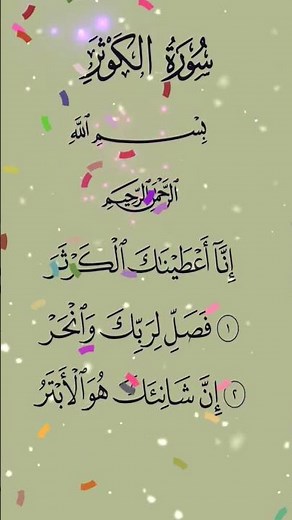 سُورَةُ الكَوْثَرِ
بِسْمِ اللَّهِ
الرَّحْمَٰنِ الرَّحِيمِ
إِنَّآ أَعْطَيْنَاكَ ٱلْكَرْثَرَ
١ فَصَلِّ لِرَبِّكَ وَٱنْحَرْ
٢ إِنَّ شَانِئَكَ هُوَ ٱلْأَبْتَرُ